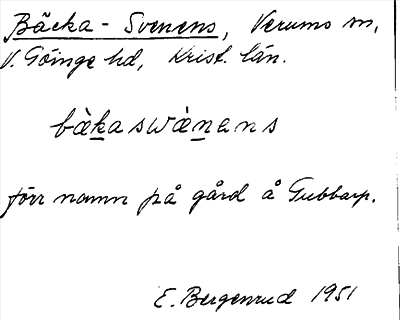 Bäcka-Svenens, Verums sn,
V. Göinge hd, Krist. län.
bàkaswànans
förr namn på gård å Gubbarp.
E. Bergenrud 1951